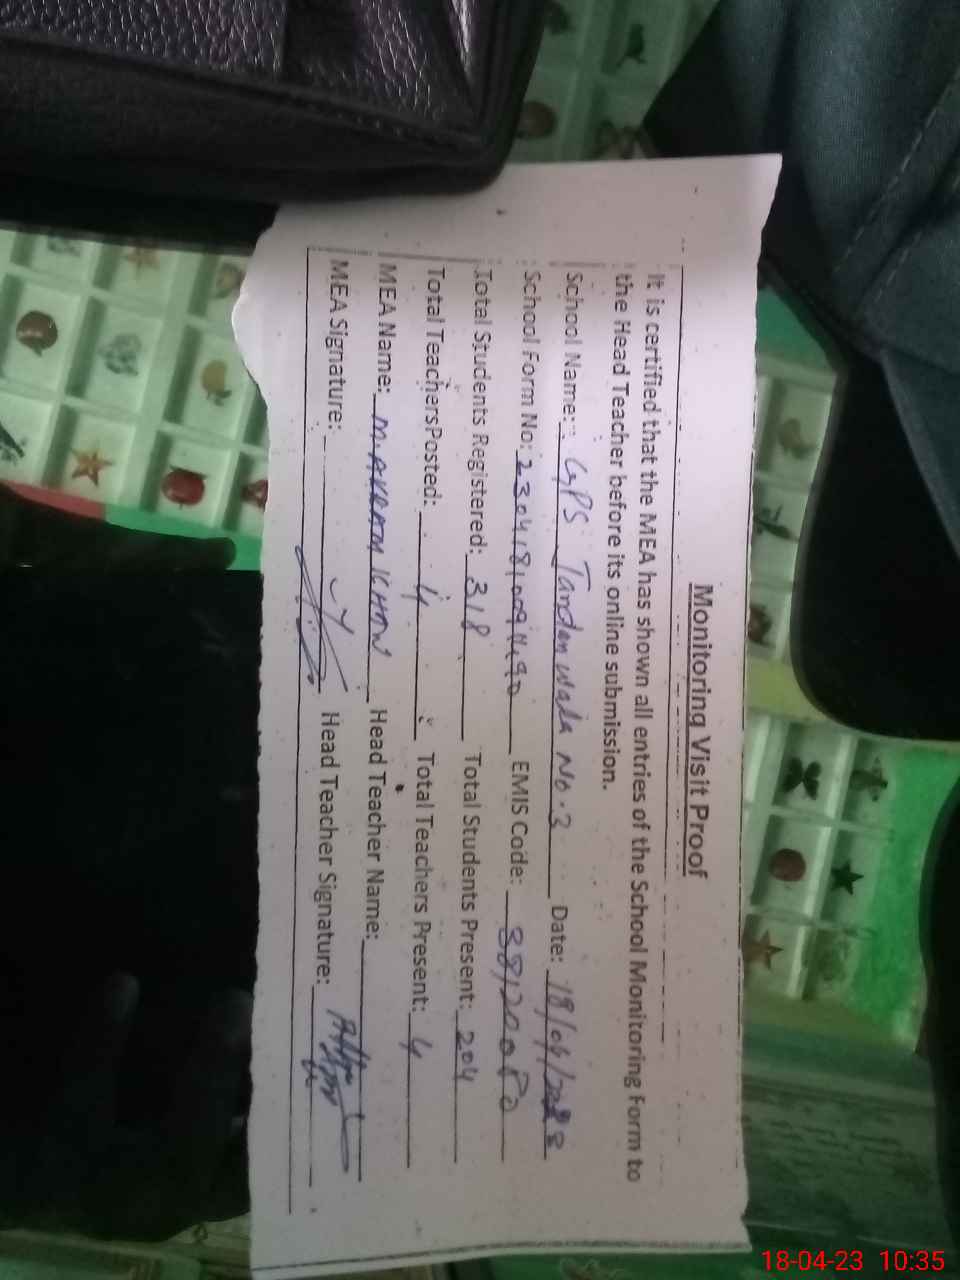 Monitoring Visit Proof
It is certified that the MEA has shown all entries of the School Monitoring Form to
the Head Teacher before its online submission.
School Name: GPS Tandanwala No.3 Date: 18/04/2023
School Form No: EMIS Code:
Total Students Registered: 318 Total Students Present: 204
Total Teachers Posted: 4 Total Teachers Present: 4
MEA Name: M. AKRAM KHAN Head Teacher Name:
MEA Signature: Head Teacher Signature:
18-04-23 10:35